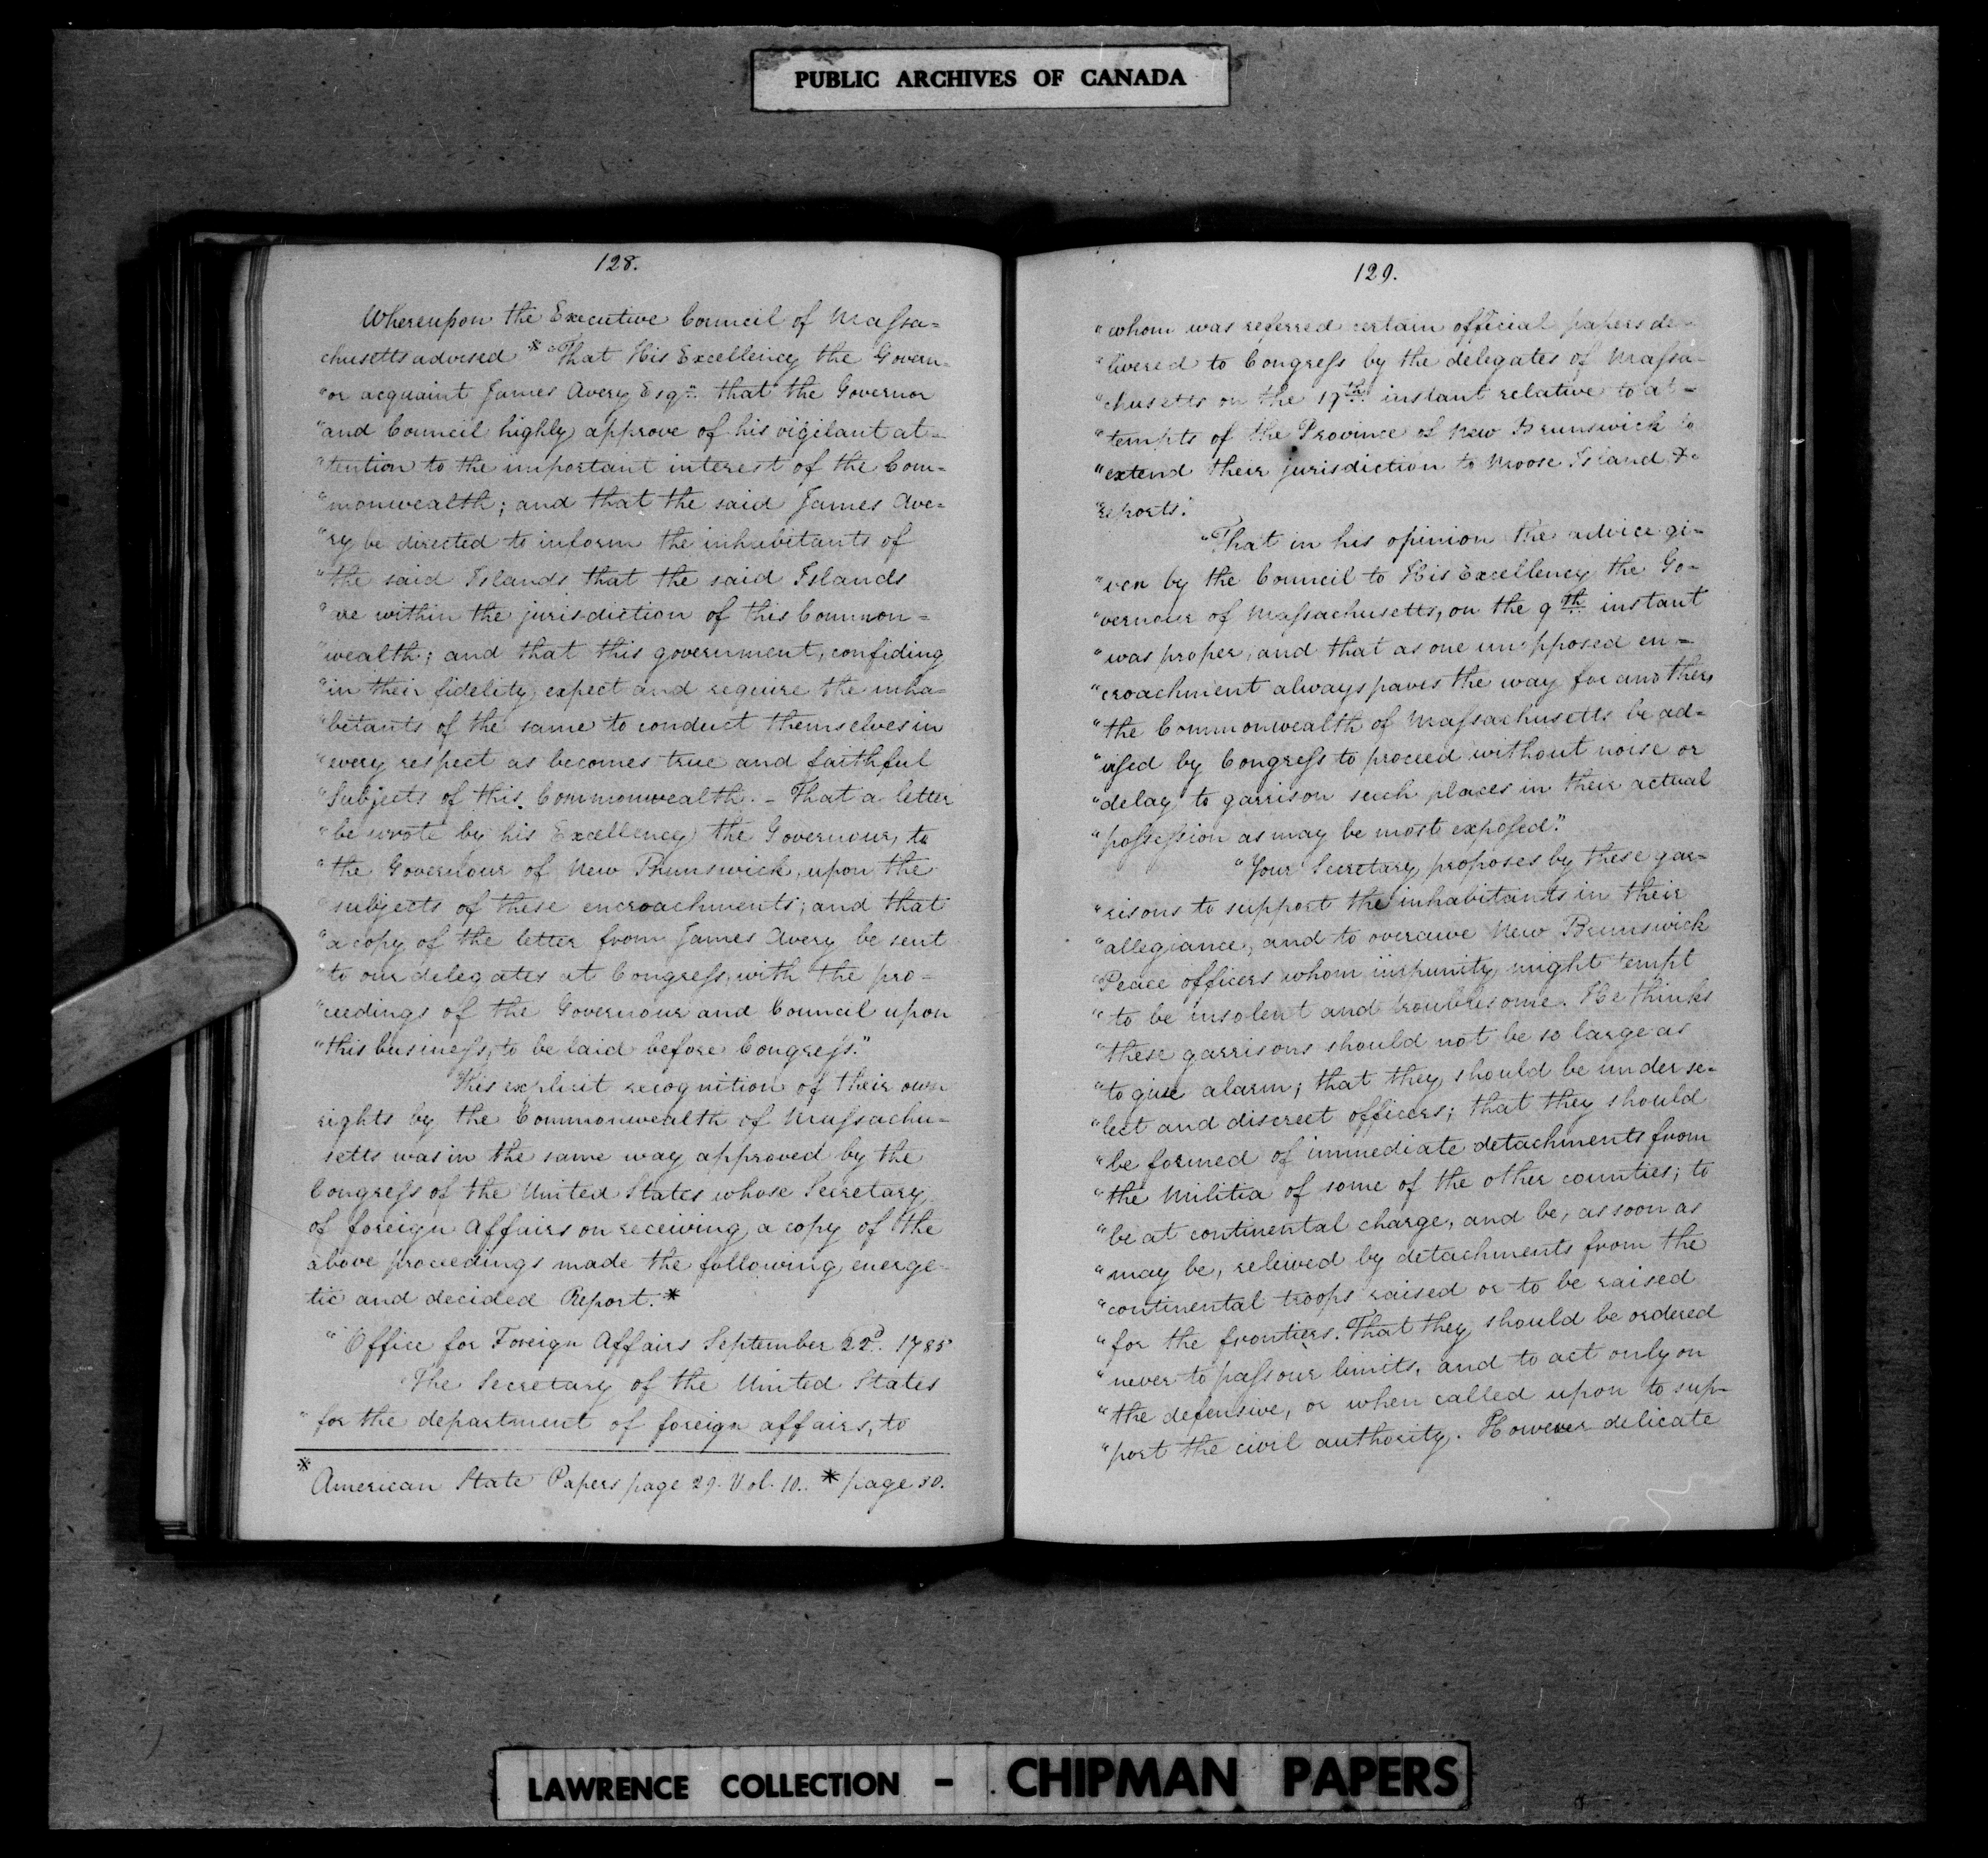 PUBLIC ARCHIVES OF CANADA
128.
Whereupon the Executive Council of Massa=
chusetts advised * "That His Excellency the Govern=
"or acquaint James Avery Esqr. that the Governor
"and Council highly approve of his vigilant at=
"tention to the important interest of the Com=
"monwealth; and that the said James Ave=
"ry be directed to inform the inhabitants of
"the said Islands that the said Islands
"are within the jurisdiction of this Common=
"wealth; and that this government, confiding
"in their fidelity expect and require the inha=
"bitants of the same to conduct themselves in
"every respect as becomes true and faithful
"Subjects of this Commonwealth. - That a letter
"be wrote by his Excellency the Governour, to
"the Governour of New Brunswick, upon the
"subjects of these encroachments; and that
"a copy of the letter from James Avery be sent
"to our delegates at Congress, with the pro=
"ceedings of the Governour and Council upon
"this business, to be laid before Congress."
This explicit recognition of their own
rights by the Commonwealth of Massachu=
setts was in the same way approved by the
Congress of the United States whose Secretary
of foreign Affairs on receiving a copy of the
above proceedings made the following energe=
tic and decided Report. *
"Office for Foreign Affairs September 22d. 1785
"The Secretary of the United States
"for the department of foreign affairs, to
* American State Papers page 29. Vol. 10. * page 30.
129.
"whom was referred certain official papers de=
"livered to Congress by the delegates of Massa=
"chusetts on the 19th. instant relative to at=
"tempts of the Province of New Brunswick to
"extend their jurisdiction to Moose Island &c
"reports."
"That in his opinion the advice gi=
"ven by the Council to His Excellency the Go=
"vernour of Massachusetts, on the 9th. instant
"was proper, and that as one unopposed en=
"croachment always paves the way for another,
"the Commonwealth of Massachusetts be ad=
"vised by Congress to proceed without noise or
"delay to garrison such places in their actual
"possession as may be most exposed."
"Your Secretary proposes by these gar=
"risons to support the inhabitants in their
"allegiance, and to overawe New Brunswick
"Peace officers whom impunity might tempt
"to be insolent and troublesome. He thinks
"these garrisons should not be so large as
"to give alarm; that they should be under se=
"lect and discreet officers; that they should
"be formed of immediate detachments from
"the Militia of some of the other counties; to
"be at continental charge, and be, as soon as
"may be, releived by detachments from the
"continental troops raised or to be raised
"for the frontiers. That they should be ordered
"never to pass our limits, and to act only on
"the defensive, or when called upon to sup=
"port the civil authority. However delicate
LAWRENCE COLLECTION - CHIPMAN PAPERS